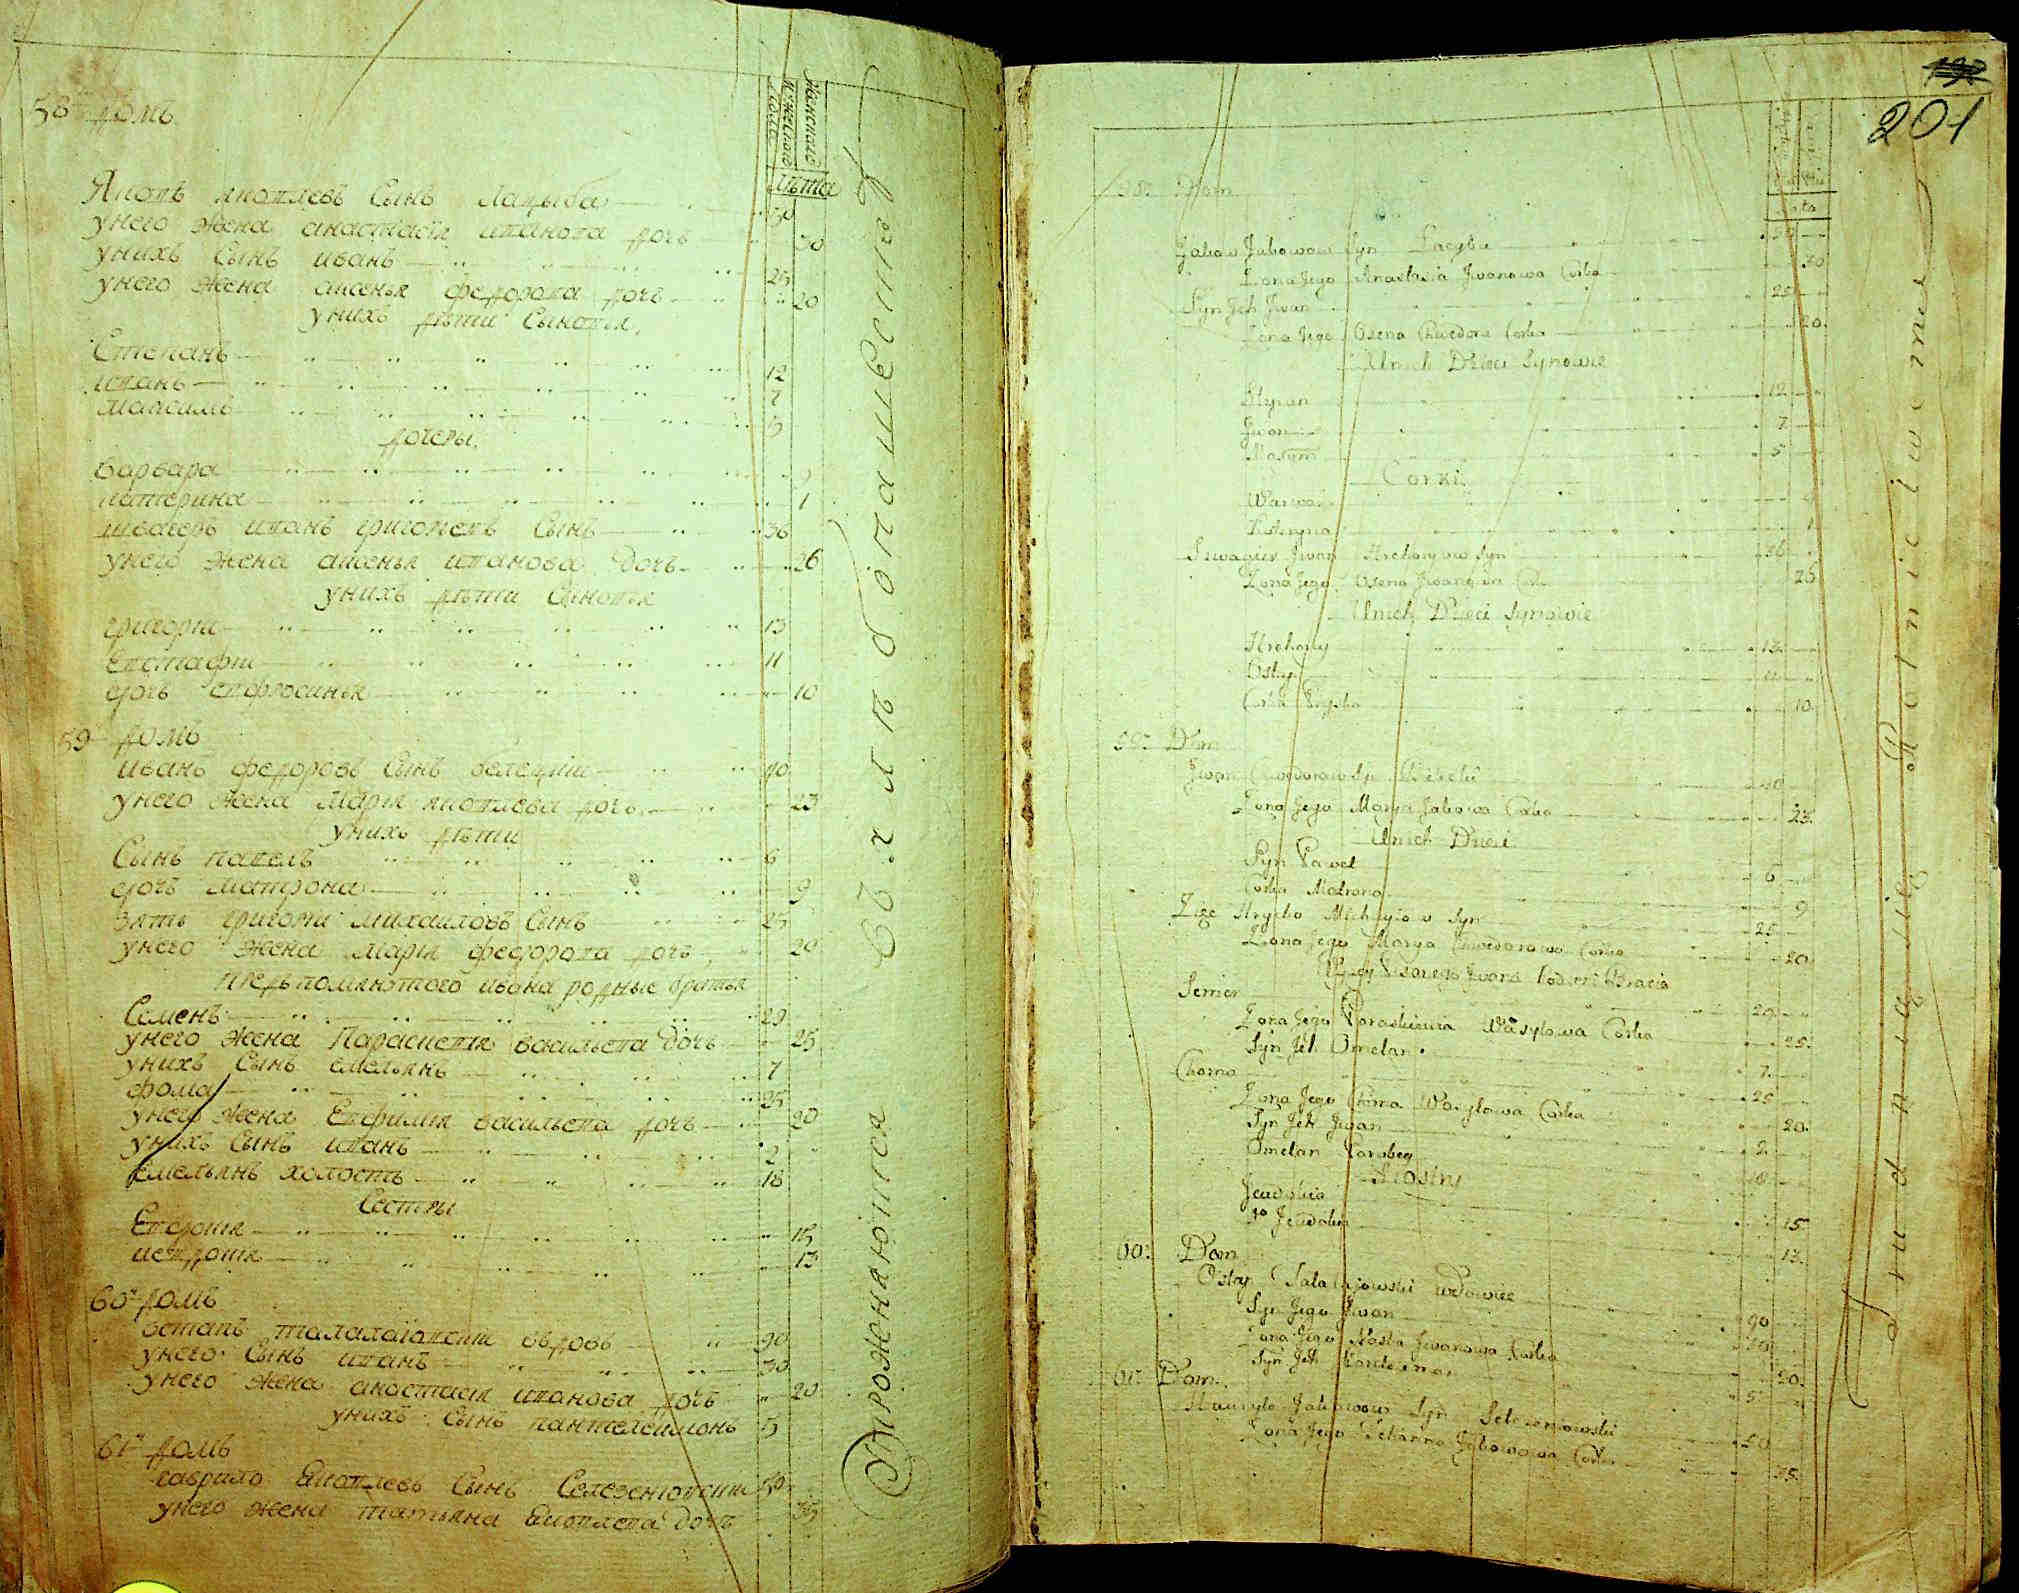 58 домъ
мужескаго
женскаго
лѣта
Яковъ яковлевъ Сынъ Лацыба 50
унего жена анастасія иванова дочь 30
унихъ Сынъ иванъ 25
унего жена аксенья федорова дочь 20
унихъ дѣти Сыновья
Степанъ 12
иванъ 7
максимъ 5
дочеры
варвара 9
катерина 1
швагеръ иванъ григорьевъ Сынъ 36
унего жена аксенья иванова дочь 26
унихъ дѣти Сыновья
григорій 13
Евстафій 11
дочь евфросинья 10
59 домъ
иванъ федоровъ Сынъ белецкій 40
унего жена марія яковлева дочь 23
унихъ дѣти
Сынъ павелъ 6
дочь матрона 9
зять григорій михаиловъ Сынъ 25
унего жена марія федорова дочь 20
предъпомянутого ивана родные братья
Семенъ 29
унего жена Парасковія васильева дочь 25
унихъ Сынъ емельянъ 7
фома 25
унего жена Евфимія васильева дочь 20
унихъ Сынъ иванъ 2
емельянъ холостъ 18
Сестры
Евдокія 15
иевдокія 13
60 домъ
остапъ талалаювскій вдовъ 90
унего Сынъ иванъ 30
унего жена анастасія иванова дочь 20
унихъ Сынъ пантелеимонъ 5
61 домъ
гаврило Яковлевъ Сынъ Селезеніовскій 50
унего жена татьяна Яковлева дочь 35
201
58. Dom
Lata
Jakow Jakowow Syn Lacyba 50
Żona Jego Anastasia Jwanowa Corka 30
Syn Jch Jwan 25
Żona Jego Oxena Chwedora Corka 20
Unich Dzieci Synowie
Stepan 12
Jwan 7
Maxym 5
Corki
Warwara 9
Kateryna 1
Szwagier Jwan Hrehoryow Syn 36
Żona Jego Oxena Jwanowa Corka 26
Unich Dzieci Synowie
Hrehory 13
Ostap 11
Corka 10
59. Dom
Jwan Chwedorow Syn Bilecki 40
Żona Jego Marya Jakowa Corka 23
Unich Dzieci
Syn Pawel 6
Corka Matrona 9
Zięć Hryćko Michayłow Syn 25
Żona Jego Marya Chwedorowa Corka 20
Jwana Rodzeni Bracia
Semen 29
Żona Jego Paraskiewia Wasylowa Corka 25
Syn Jch Omelan 7
Choma 25
Żona Jego Wasylowa Corka 20
Syn Jch Jwan 2
Omelan Parobek 18
Siostry
Jewdokia 15
Jewdokia 13
60. Dom
Ostap Talalajowski wdowiec 90
Syn Jego Jwan 30
Żona Jego Nastia Jwanowa Corka 20
Syn Jch 5
61. Dom
Hawryło Jakowow Syn Selezeniowski 50
Żona Jego Tetianna Jakowowa Corka 35